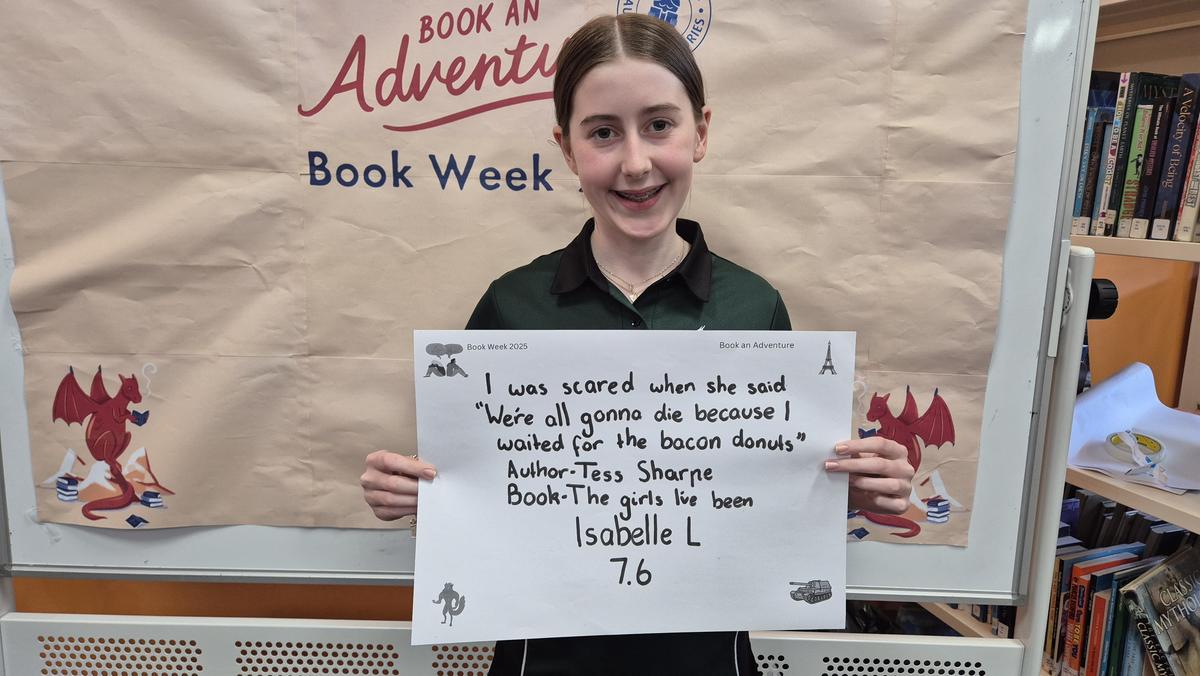 BOOK AN
Adventu
Book Week
RIES
Book Week 2025
Book an Adventure
I was scared when she said
"We're all gonna die because I
waited for the bacon donuts"
Author-Tess Sharpe
Book-The girls I've been
Isabelle L
7.6
A Velocity of Being
CLASSIC
MYTHO